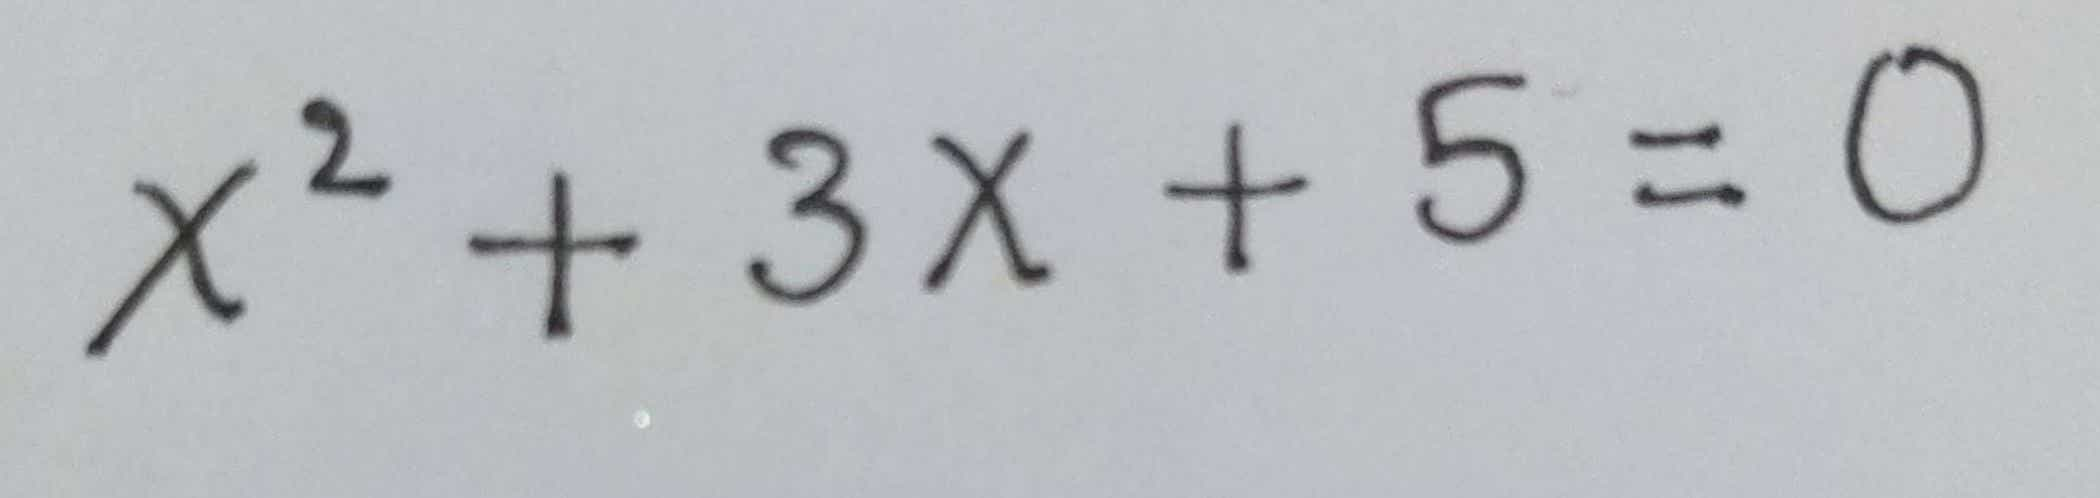 x² + 3x + 5 = 0